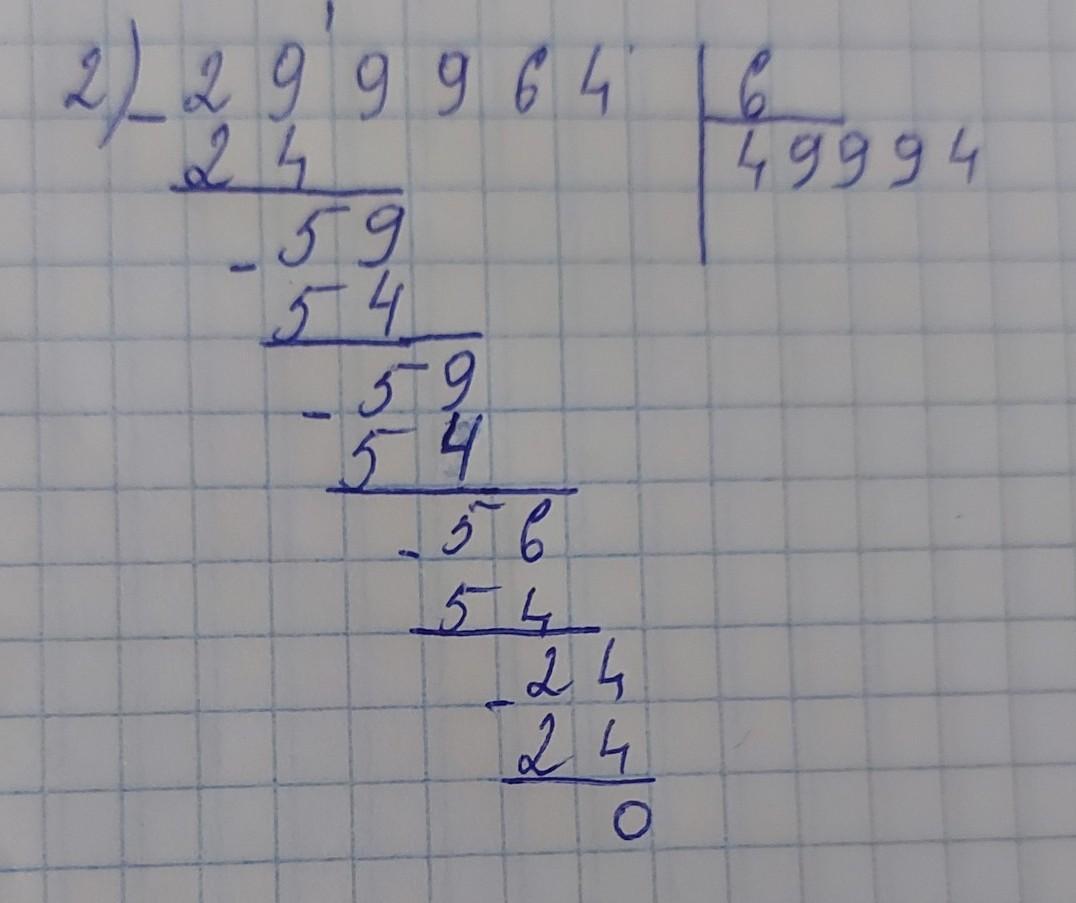 2) - 299964 | 6
24 | 49994
- 59
54
- 59
54
- 56
54
- 24
24
0